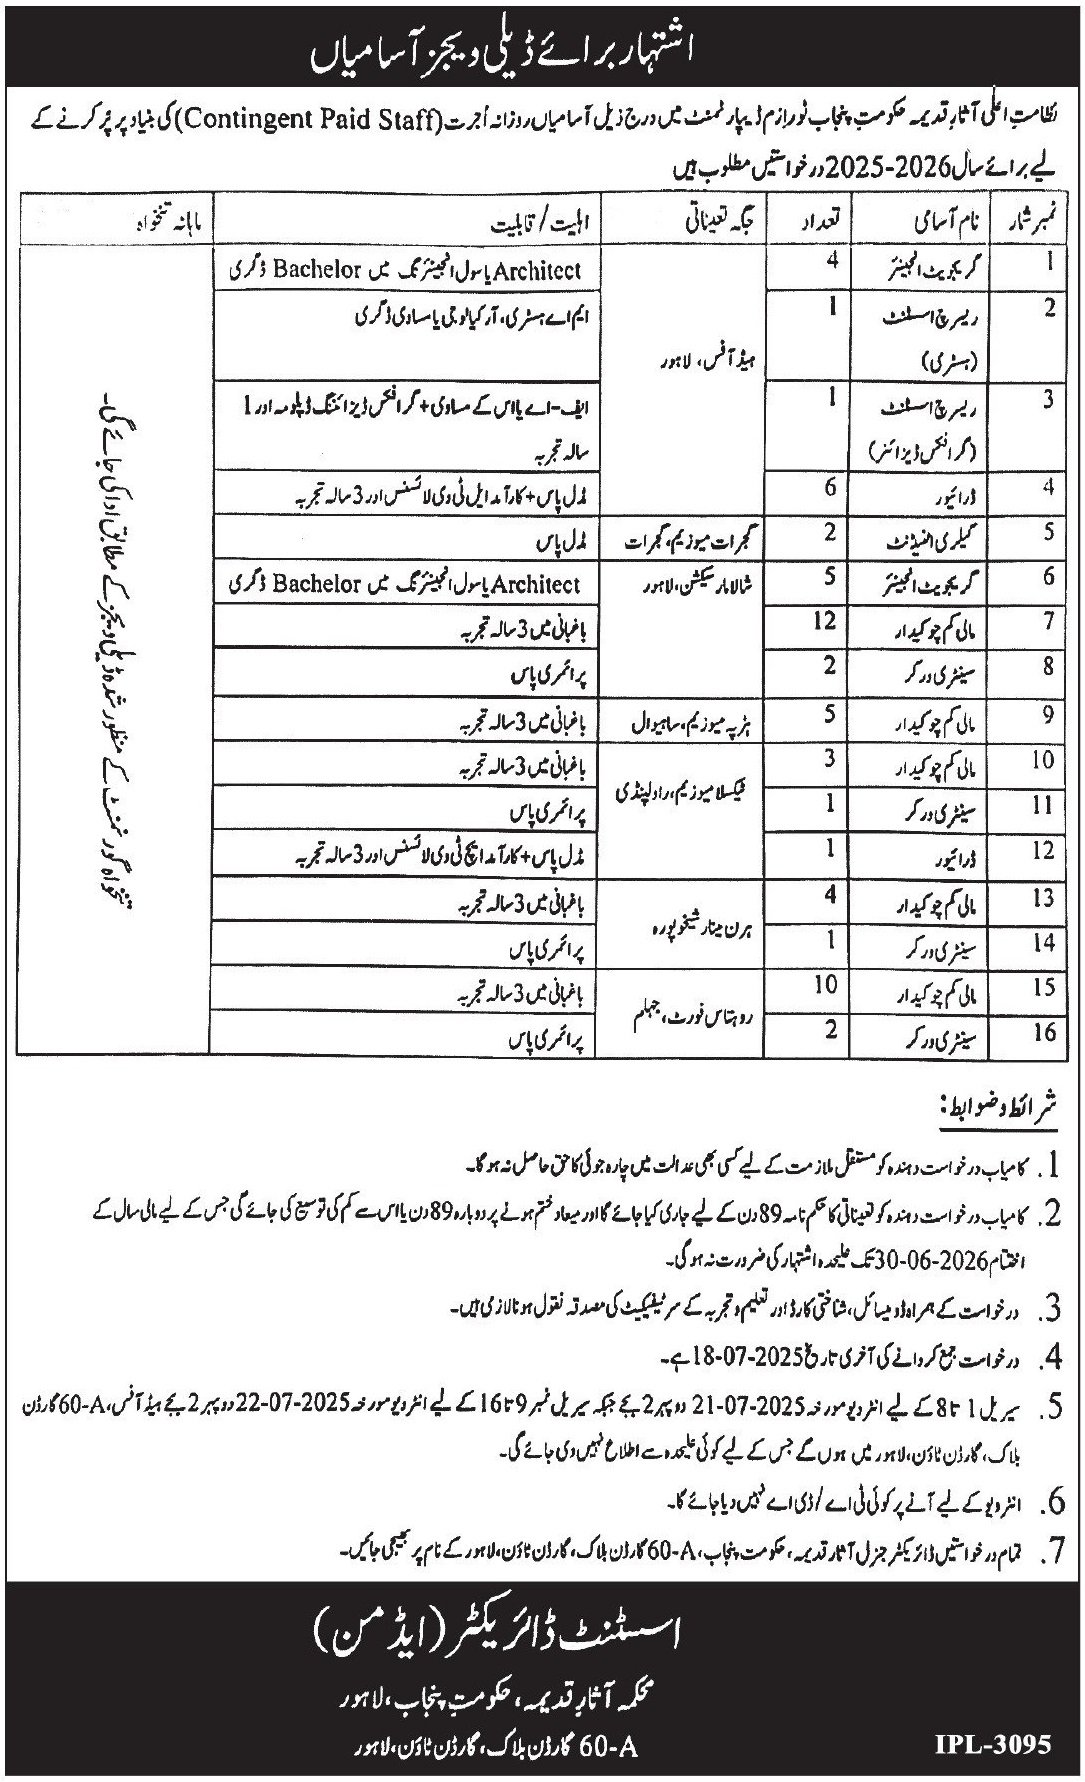 اشتہار برائے ڈیلی ویجز آسامیاں
نظامتِ اعلیٰ آثارِ قدیمہ حکومتِ پنجاب ٹورازم ڈیپارٹمنٹ میں درج ذیل آسامیاں روزانہ اُجرت (Contingent Paid Staff) کی بنیاد پر پُر کرنے کے
لیے برائے سال 2026-2025 درخواستیں مطلوب ہیں
نمبر شمار نام آسامی تعداد جگہ تعیناتی اہلیت / قابلیت ماہانہ تنخواہ
1 گریجویٹ انجینئر 4 Architect یا سول انجینئرنگ میں Bachelor ڈگری
2 ریسرچ اسسٹنٹ 1 ایم اے ہسٹری، آرکیالوجی یا مساوی ڈگری
(ہسٹری)
ہیڈ آفس، لاہور
3 ریسرچ اسسٹنٹ 1 ایف-اے یا اس کے مساوی + گرافکس ڈیزائننگ ڈپلومہ اور 1
(گرافکس ڈیزائنر) سالہ تجربہ
4 ڈرائیور 6 مڈل پاس + کارآمد ایل ٹی وی لائسنس اور 3 سالہ تجربہ
5 گیلری اٹنڈنٹ 2 گجرات میوزیم، گجرات مڈل پاس
6 گریجویٹ انجینئر 5 شالامار سیکشن، لاہور Architect یا سول انجینئرنگ میں Bachelor ڈگری
7 مالی کم چوکیدار 12 باغبانی میں 3 سالہ تجربہ
8 سینٹری ورکر 2 پرائمری پاس
9 مالی کم چوکیدار 5 ہڑپہ میوزیم، ساہیوال باغبانی میں 3 سالہ تجربہ
10 مالی کم چوکیدار 3 باغبانی میں 3 سالہ تجربہ
ٹیکسلا میوزیم، راولپنڈی
11 سینٹری ورکر 1 پرائمری پاس
12 ڈرائیور 1 مڈل پاس + کارآمد ایچ ٹی وی لائسنس اور 3 سالہ تجربہ
13 مالی کم چوکیدار 4 باغبانی میں 3 سالہ تجربہ
ہرن مینار شیخوپورہ
14 سینٹری ورکر 1 پرائمری پاس
15 مالی کم چوکیدار 10 باغبانی میں 3 سالہ تجربہ
روہتاس فورٹ، جہلم
16 سینٹری ورکر 2 پرائمری پاس
تنخواہ گورنمنٹ کے منظور شدہ ڈیلی ویجز کے مطابق ادا کی جائے گی۔
شرائط و ضوابط:
1. کامیاب درخواست دہندہ کو مستقل ملازمت کے لیے کسی بھی عدالت میں چارہ جوئی کا حق حاصل نہ ہو گا۔
2. کامیاب درخواست دہندہ کو تعیناتی کا حکم نامہ 89 دن کے لیے جاری کیا جائے گا اور میعاد ختم ہونے پر دوبارہ 89 دن یا اس سے کم کی توسیع کی جائے گی جس کے لیے مالی سال کے
اختتام 2026-06-30 تک علیحدہ اشتہار کی ضرورت نہ ہو گی۔
3. درخواست کے ہمراہ ڈومیسائل، شناختی کارڈ اور تعلیم و تجربہ کے سرٹیفکیٹ کی مصدقہ نقول ہونا لازمی ہیں۔
4. درخواست جمع کروانے کی آخری تاریخ 2025-07-18 ہے۔
5. سیریل 1 تا 8 کے لیے انٹرویو مورخہ 2025-07-21 دوپہر 2 بجے جبکہ سیریل نمبر 9 تا 16 کے لیے انٹرویو مورخہ 2025-07-22 دوپہر 2 بجے ہیڈ آفس، 60-A گارڈن
بلاک، گارڈن ٹاؤن، لاہور میں ہوں گے جس کے لیے کوئی علیحدہ سے اطلاع نہیں دی جائے گی۔
6. انٹرویو کے لیے آنے پر کوئی ٹی اے / ڈی اے نہیں دیا جائے گا۔
7. تمام درخواستیں ڈائریکٹر جنرل آثارِ قدیمہ، حکومت پنجاب، 60-A گارڈن بلاک، گارڈن ٹاؤن، لاہور کے نام پر بھیجی جائیں۔
اسسٹنٹ ڈائریکٹر (ایڈمن)
محکمہ آثارِ قدیمہ، حکومتِ پنجاب، لاہور
60-A گارڈن بلاک، گارڈن ٹاؤن، لاہور
IPL-3095